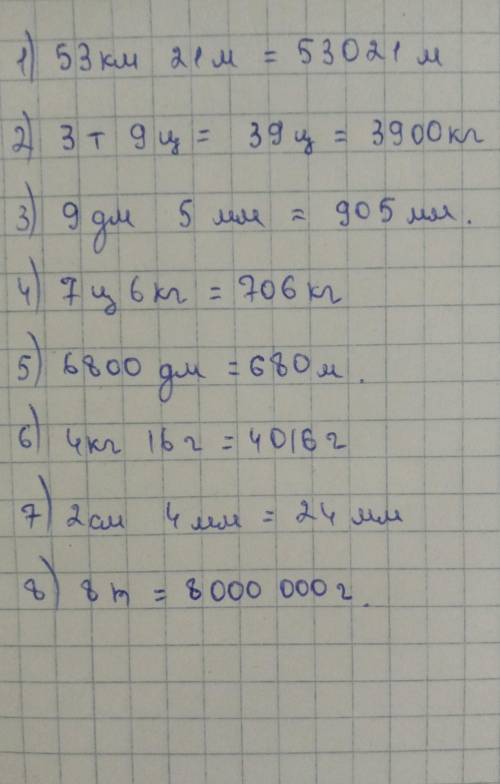 1) 53 км 21 м = 53021 м
2) 3 т 9 ц = 39 ц = 3900 кг
3) 9 дм 5 мм = 905 мм.
4) 7 ц 6 кг = 706 кг
5) 6800 дм = 680 м.
6) 4 кг 16 г = 4016 г
7) 2 см 4 мм = 24 мм
8) 8 т = 8000 000 г.